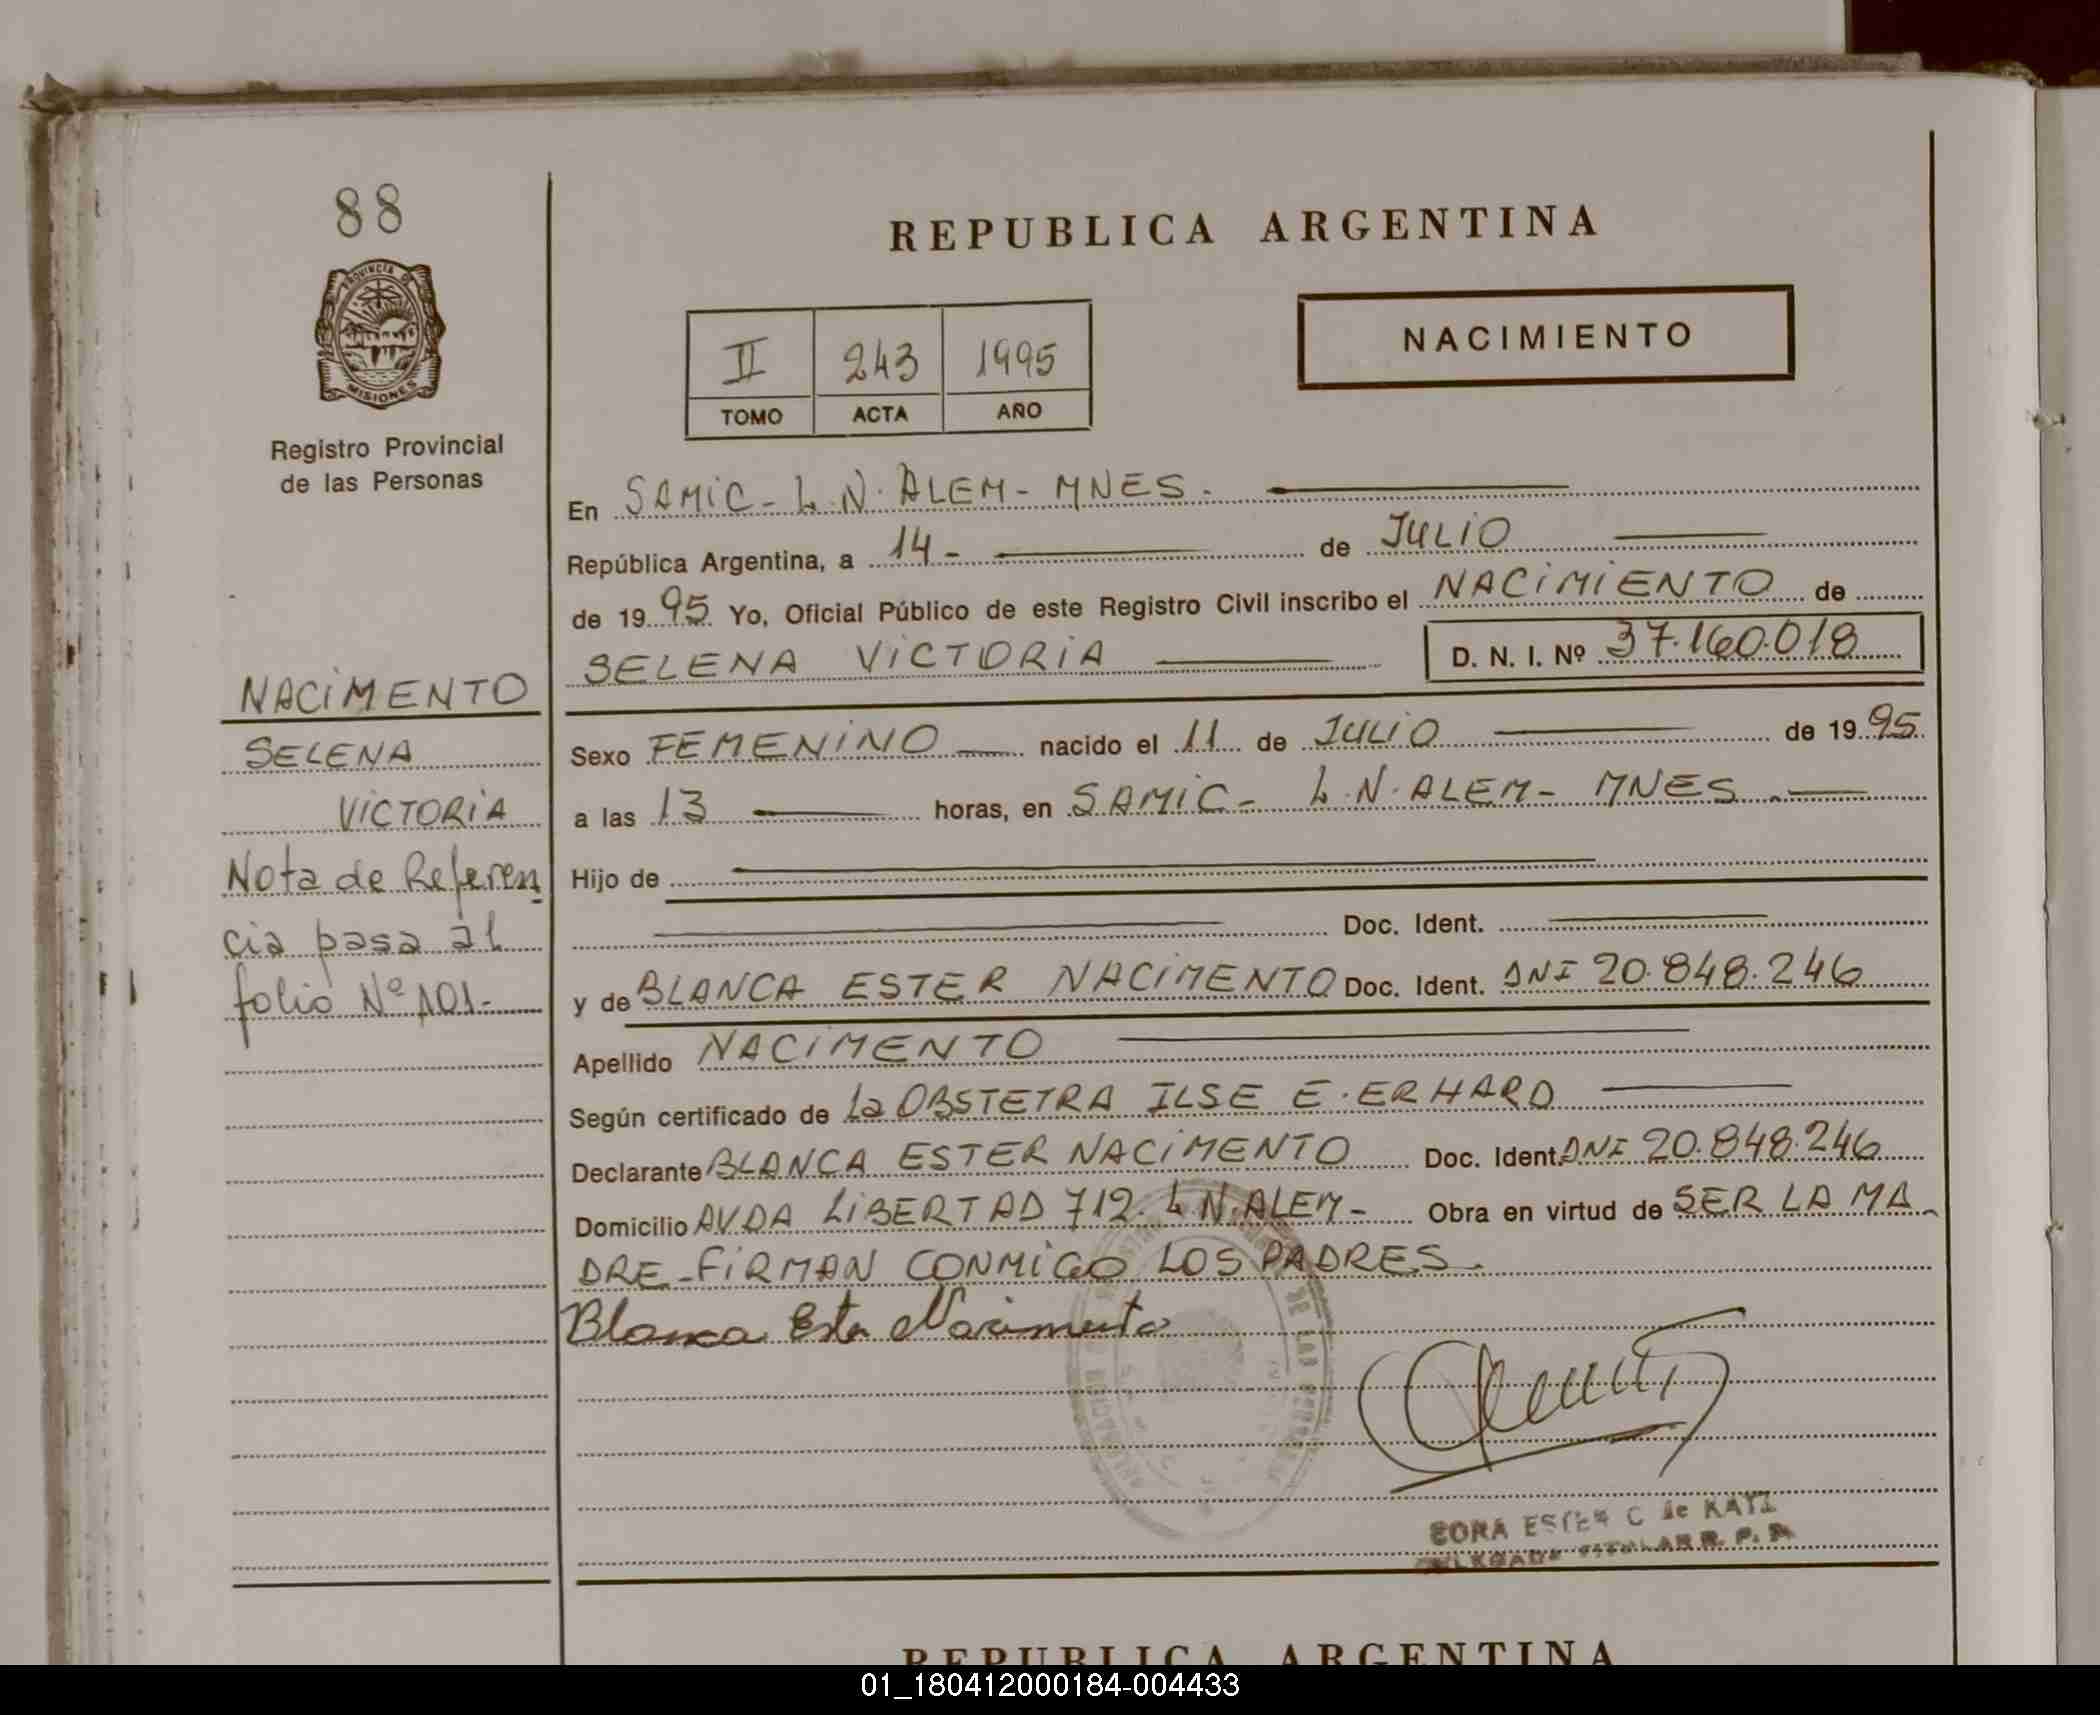 88
PROVINCIA DE
MISIONES
Registro Provincial
de las Personas
REPUBLICA ARGENTINA
II 243 1995
TOMO ACTA AÑO
NACIMIENTO
En SAMIC - L.N. ALEM - MNES.
República Argentina, a 14 - de JULIO
de 1995 Yo, Oficial Público de este Registro Civil inscribo el NACIMIENTO de
SELENA VICTORIA D. N. I. Nº 37.160.018
NACIMENTO
SELENA
VICTORIA
Nota de Referen
cia pasa al
folio Nº 101.-
Sexo FEMENINO nacido el 11 de JULIO de 1995
a las 13 horas, en SAMIC - L.N. ALEM - MNES.
Hijo de
Doc. Ident.
y de BLANCA ESTER NACIMENTO Doc. Ident. DNI 20.848.246
Apellido NACIMENTO
Según certificado de La OBSTETRA ILSE E. ERHARD
Declarante BLANCA ESTER NACIMENTO Doc. Ident. DNI 20.848.246
Domicilio AVDA LIBERTAD 712. L N. ALEM - Obra en virtud de SER LA MA-
DRE - FIRMAN CONMIGO LOS PADRES.
Blanca Ester Nacimento
DE LAS
ESTER C de KATZ
TITULAR R. P. P.
REPUBLICA ARGENTINA
01_180412000184-004433